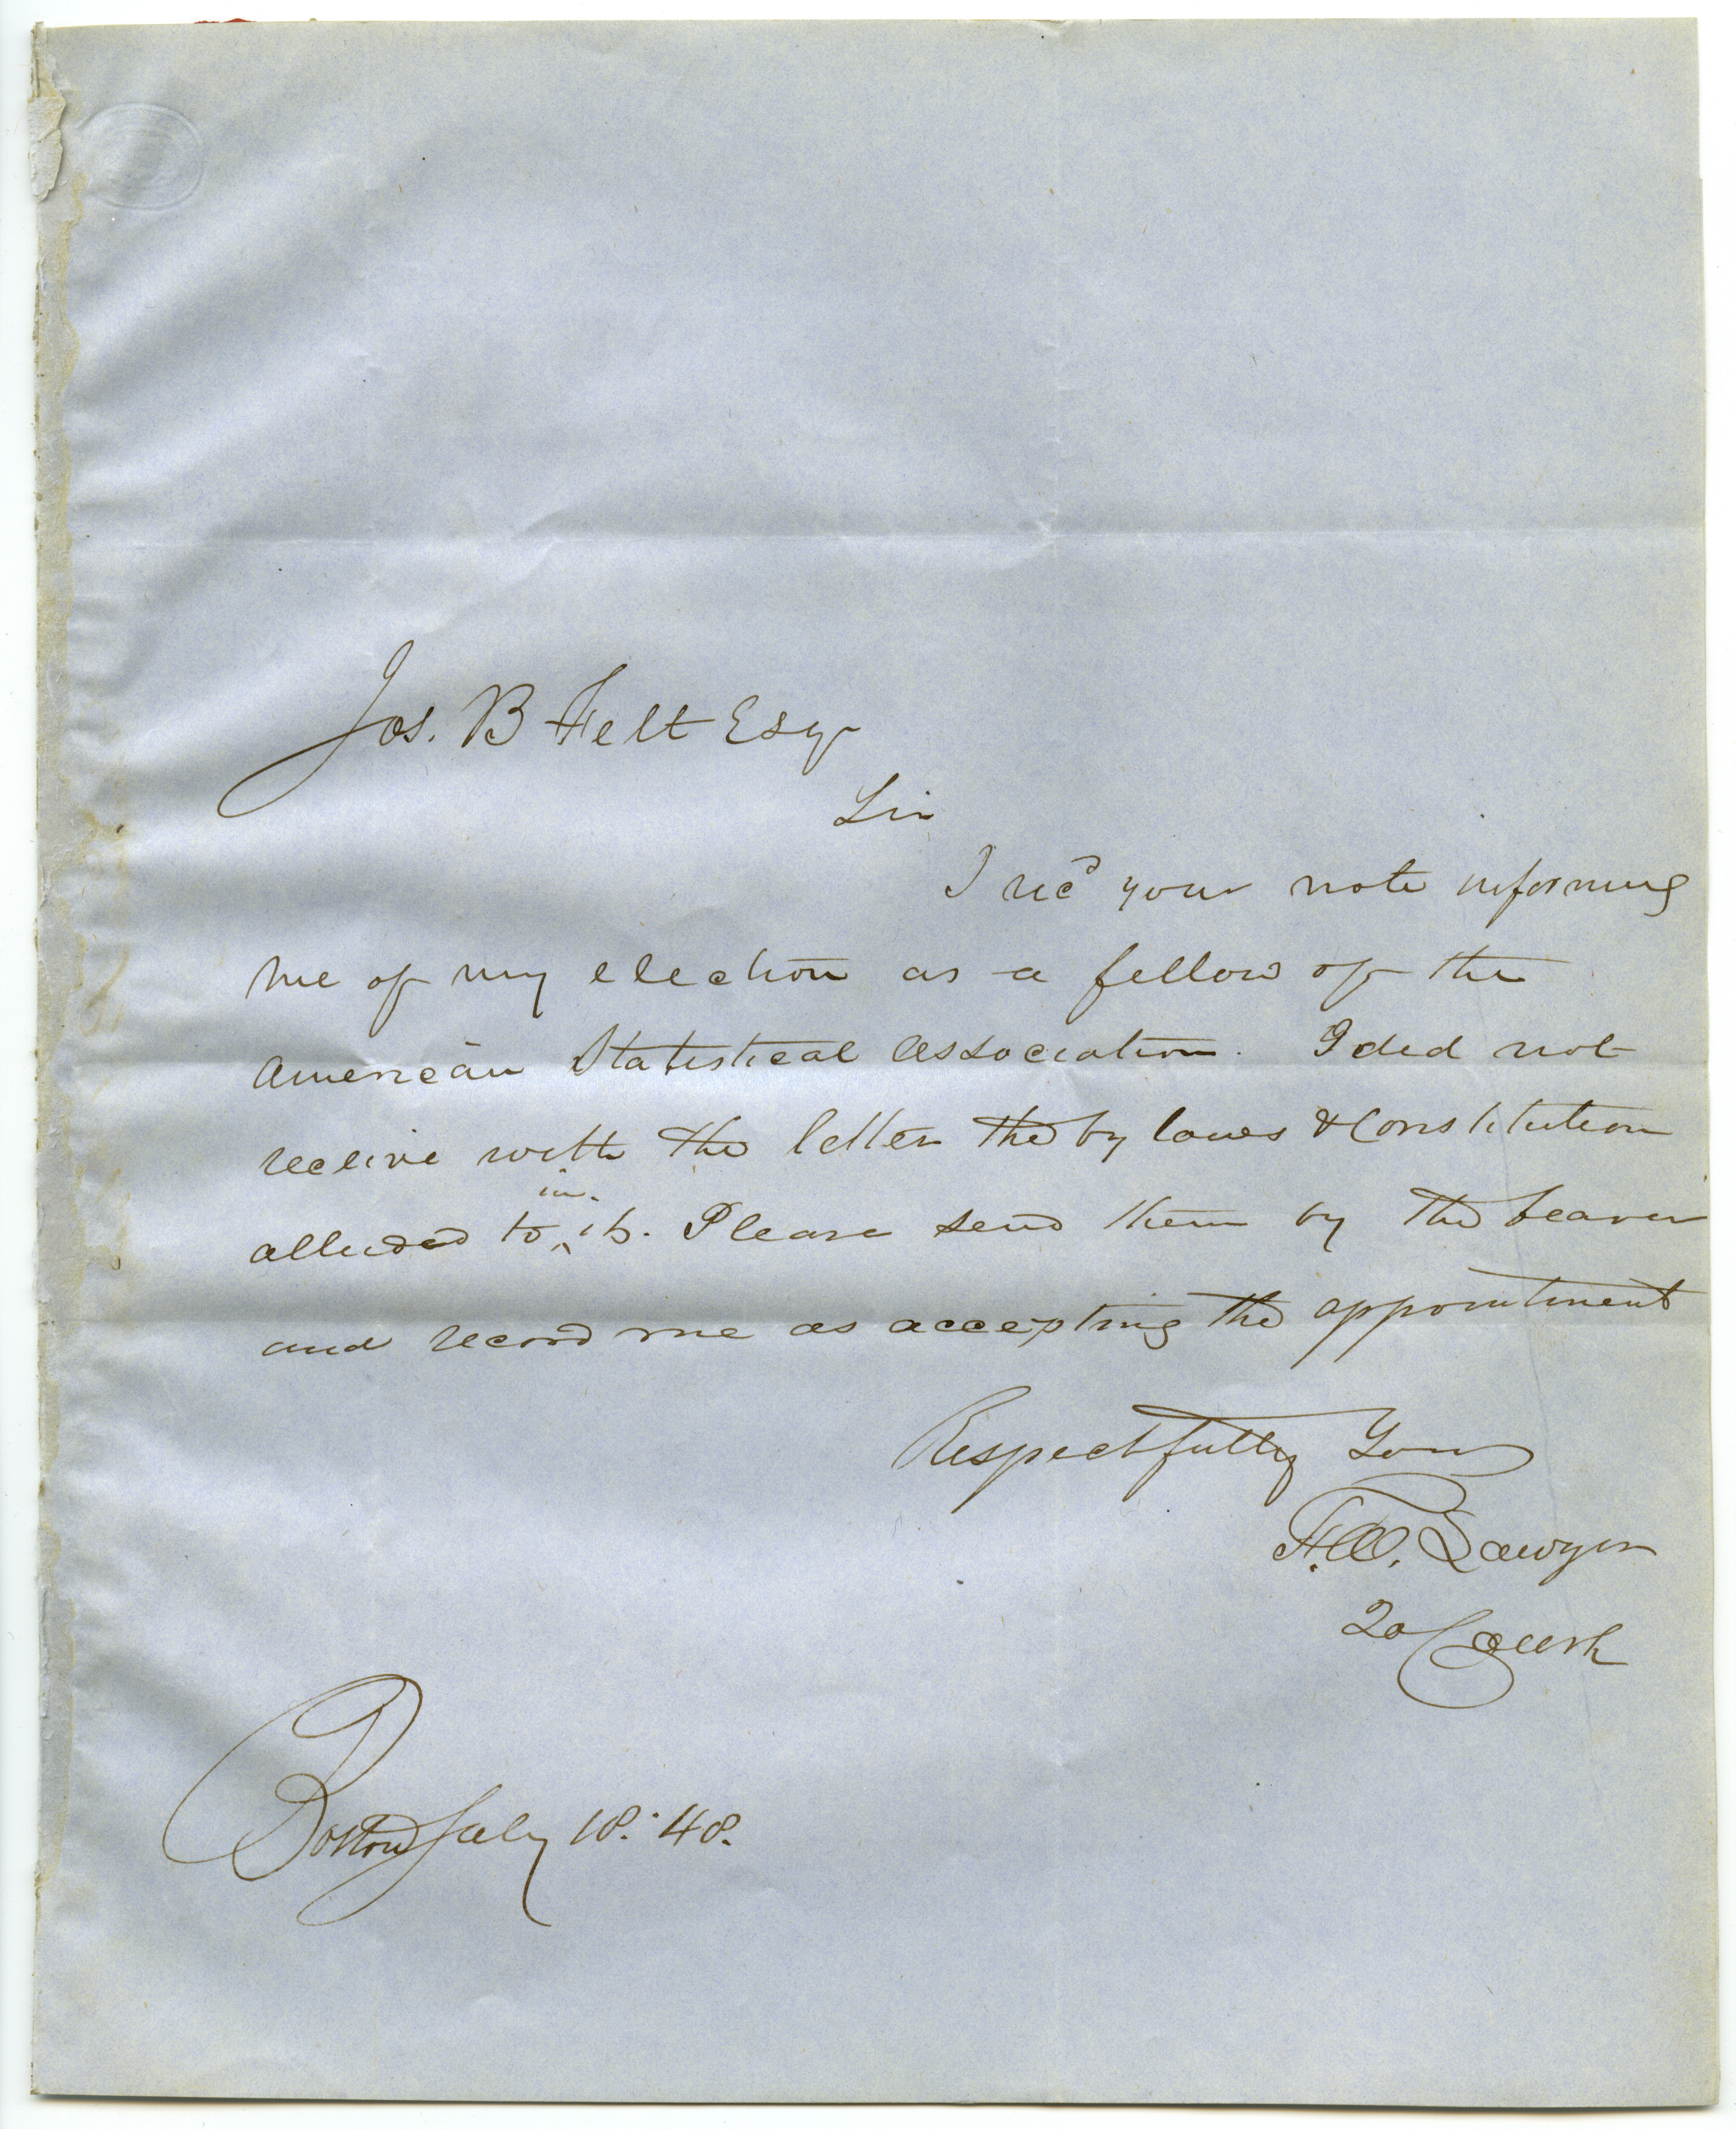 Jos. B Felt Esqr
Sir
I recd your note informing
me of my election as a fellow of the
American Statistical Association. I did not
receive with the letter the by laws & Constitution
alluded to in it. Please send them by the bearer
and record me as accepting the appointment
Respectfully Yours
F. W. Sawyer
20 Court
Boston July 18. '48.